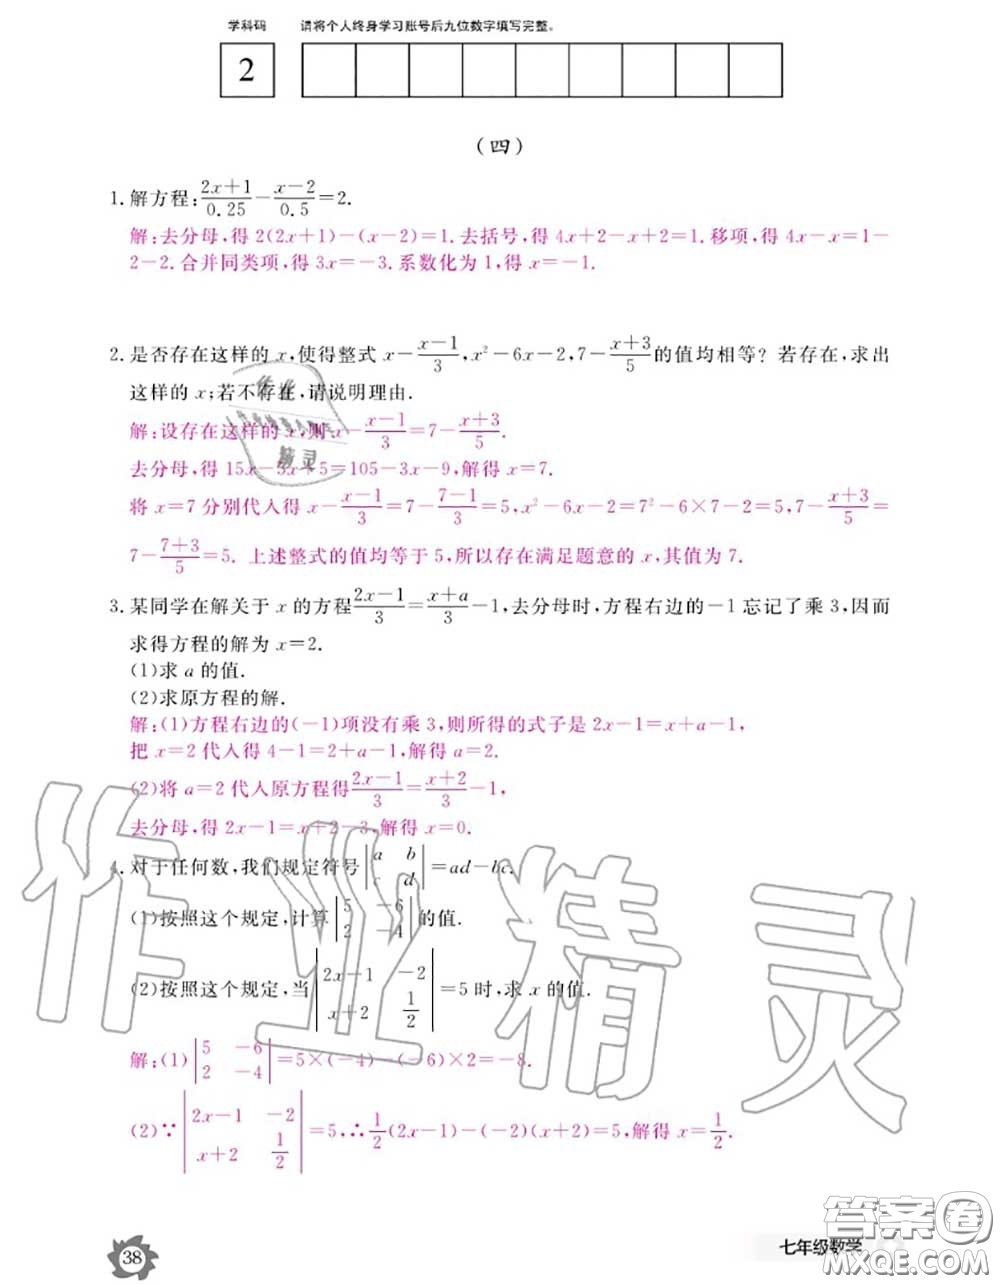 学科码 请将个人终身学习账号后九位数字填写完整。
2
（四）
1. 解方程：(2x+1)/0.25－(x－2)/0.5＝2.
解：去分母，得 2(2x+1)－(x－2)＝1. 去括号，得 4x＋2－x＋2＝1. 移项，得 4x－x＝1－
2－2. 合并同类项，得 3x＝－3. 系数化为 1，得 x＝－1.
2. 是否存在这样的 x，使得整式 x－(x－1)/3，x²－6x－2，7－(x＋3)/5 的值均相等？若存在，求出
这样的 x；若不存在，请说明理由.
解：设存在这样的 x，则 x－(x－1)/3＝7－(x＋3)/5.
去分母，得 15x－5x＋5＝105－3x－9，解得 x＝7.
将 x＝7 分别代入得 x－(x－1)/3＝7－(7－1)/3＝5，x²－6x－2＝7²－6×7－2＝5，7－(x＋3)/5＝
7－(7＋3)/5＝5. 上述整式的值均等于 5，所以存在满足题意的 x，其值为 7.
3. 某同学在解关于 x 的方程 (2x－1)/3＝(x＋a)/3－1，去分母时，方程右边的－1 忘记了乘 3，因而
求得方程的解为 x＝2.
(1)求 a 的值.
(2)求原方程的解.
解：(1)方程右边的(－1)项没有乘 3，则所得的式子是 2x－1＝x＋a－1，
把 x＝2 代入得 4－1＝2＋a－1，解得 a＝2.
(2)将 a＝2 代入原方程得 (2x－1)/3＝(x＋2)/3－1，
去分母，得 2x－1＝x＋2－3，解得 x＝0.
4. 对于任何数，我们规定符号 |a b; c d|＝ad－bc.
(1)按照这个规定，计算 |5 －6; 2 －4| 的值.
(2)按照这个规定，当 |2x－1 －2; x＋2 1/2|＝5 时，求 x 的值.
解：(1) |5 －6; 2 －4|＝5×(－4)－(－6)×2＝－8.
(2)∵ |2x－1 －2; x＋2 1/2|＝5，∴ 1/2(2x－1)－(－2)(x＋2)＝5，解得 x＝1/2.
作业精灵
38
七年级数学
答案圈
MXQE.COM